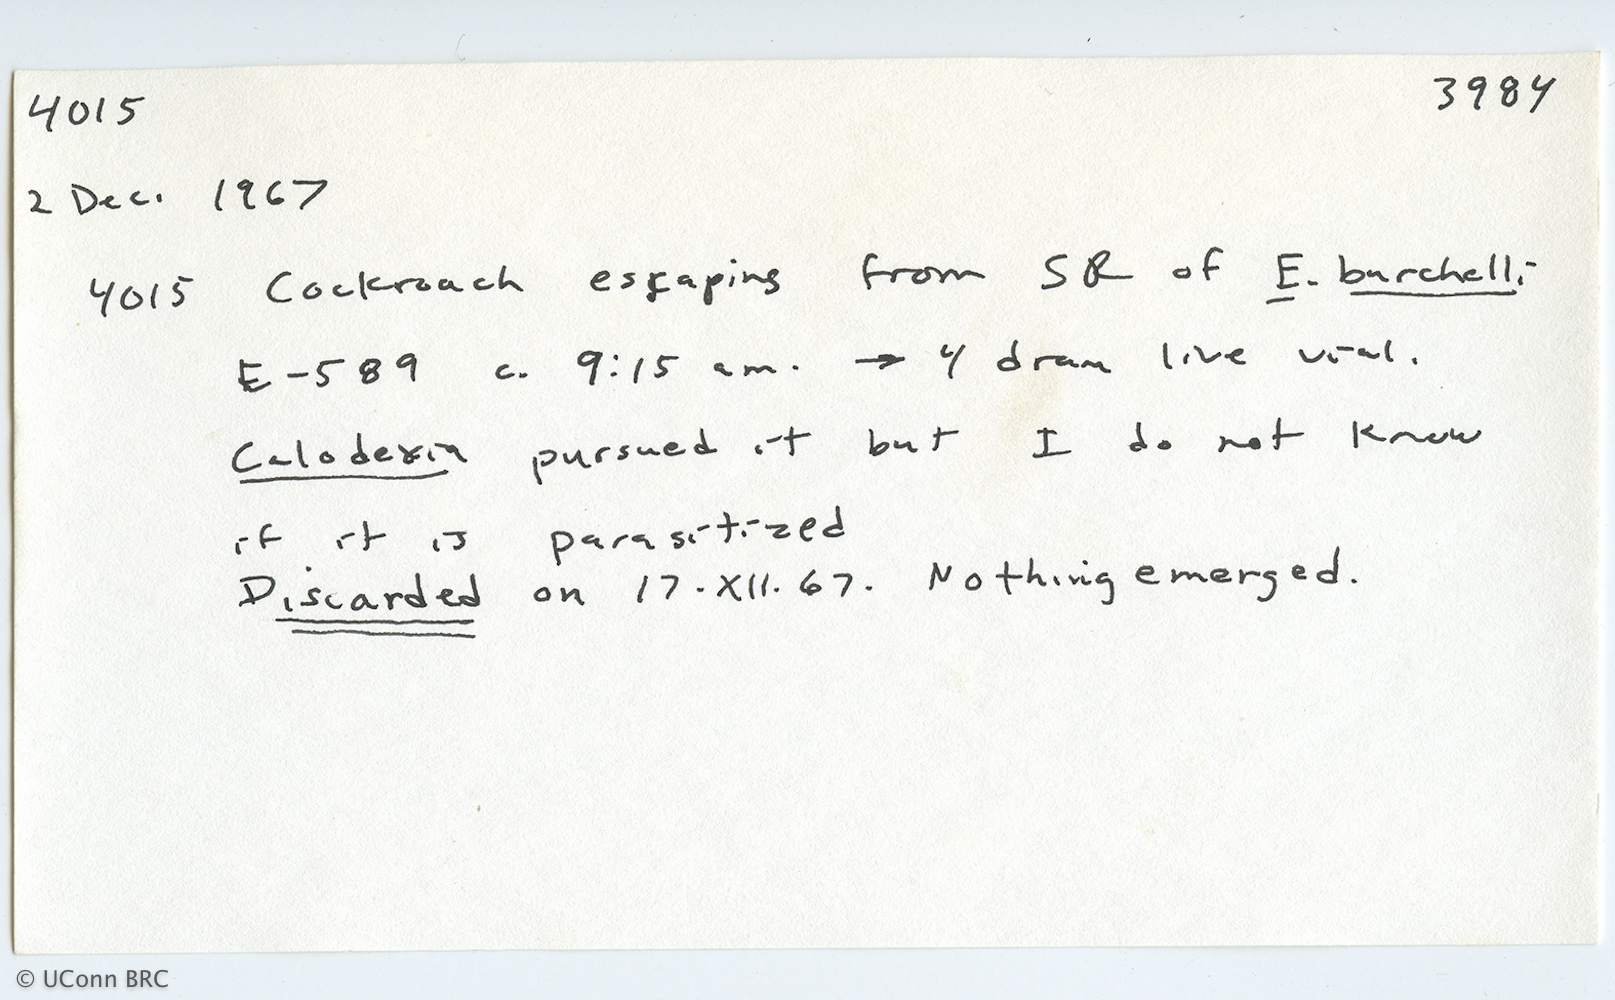 4015 3984
2 Dec. 1967
4015 Cockroach escaping from SR of E. burchelli
E-589 c. 9:15 am. → 4 dram live vial.
Calodexia pursued it but I do not know
if it is parasitized
Discarded on 17.XII.67. Nothing emerged.
© UConn BRC